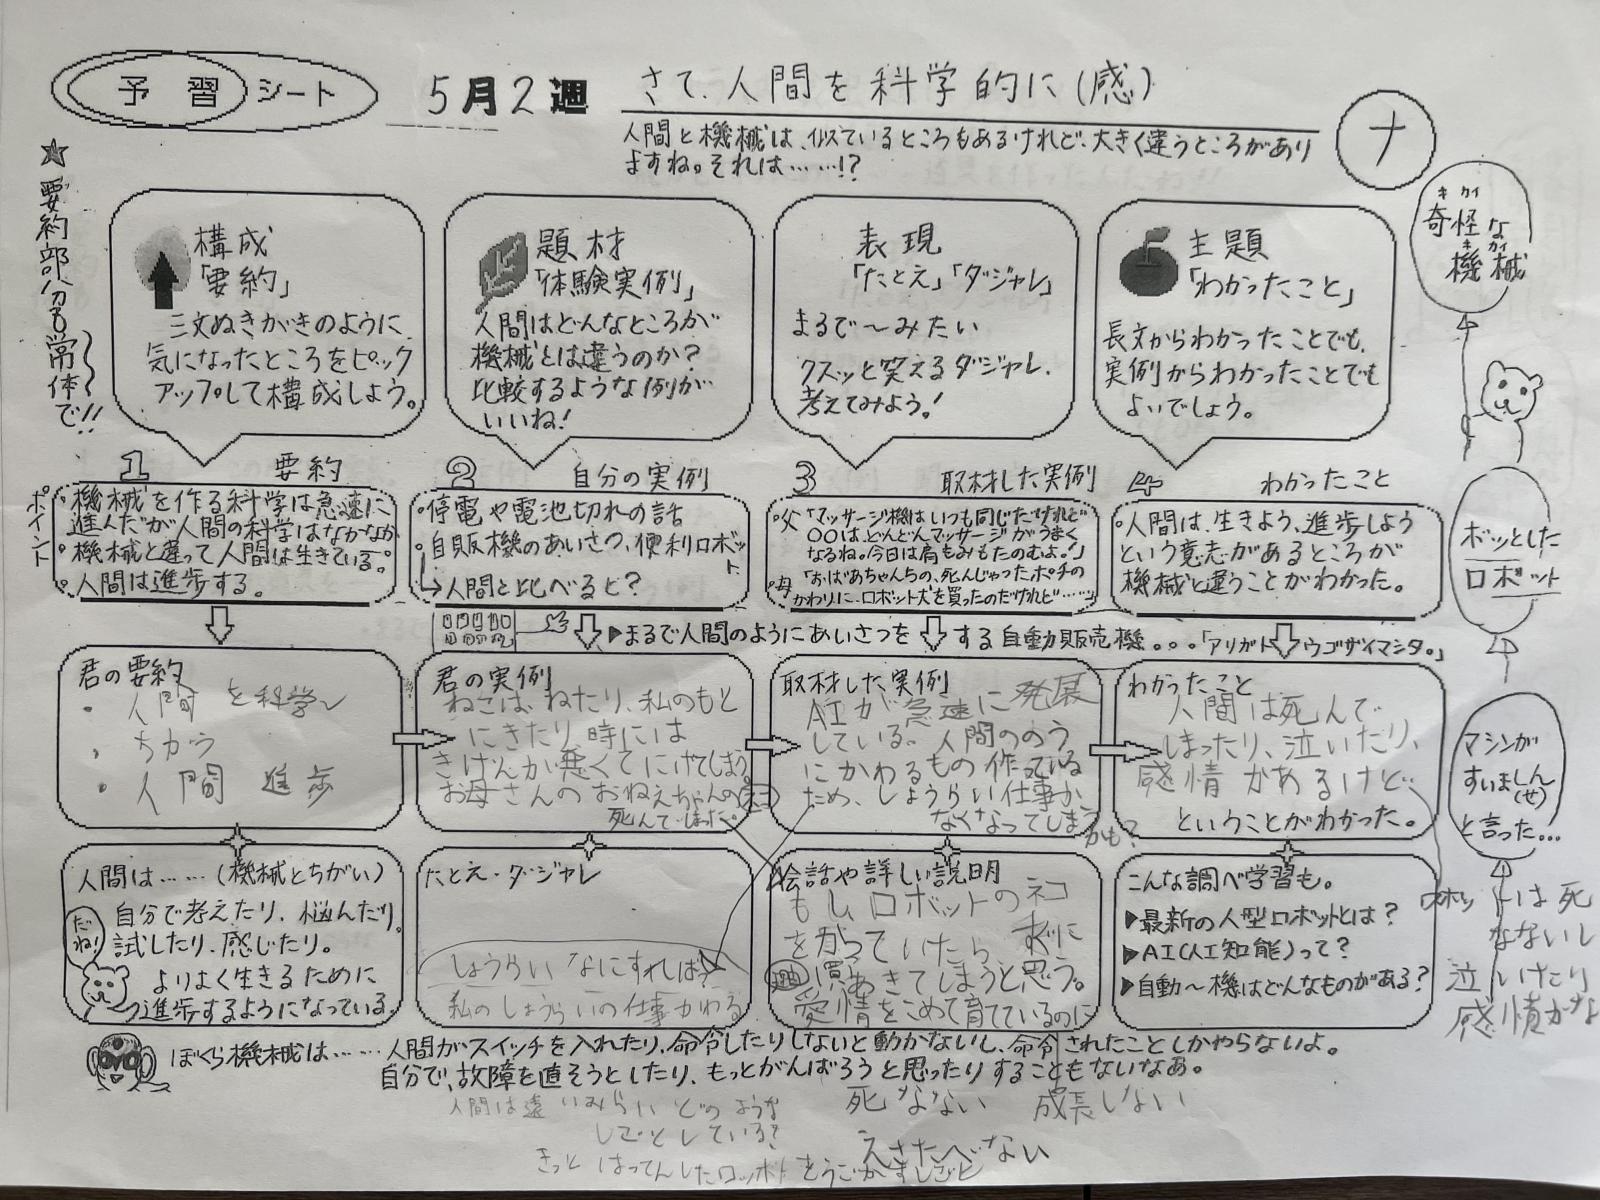 予習シート
5月2週
さて、人間を科学的に(感)
人間と機械は、似ているところもあるけれど、大きく違うところがあり
ますね。それは……!?
ナ
★要約部分も常体で!!
構成
「要約」
三文ぬきがきのように
気になったところをピック
アップして構成しよう。
題材
「体験実例」
人間はどんなところが
機械とは違うのか?
比較するような例が
いいね!
表現
「たとえ」「ダジャレ」
まるで〜みたい
クスッと笑えるダジャレ、
考えてみよう!
主題
「わかったこと」
長文からわかったことでも、
実例からわかったことでも
よいでしょう。
奇怪な
キカイ
機械
キカイ
ボッとした
ロボット
マシンが
すいましん
(せ)
と言った…
1 要約
ポイント
・機械を作る科学は急速に
進んだが人間の科学はなかなか
・機械と違って人間は生きている。
・人間は進歩する。
2 自分の実例
・停電や電池切れの話
・自販機のあいさつ、便利ロボット
→人間と比べると?
3 取材した実例
・父「マッサージ機はいつも同じだけれど
〇〇は、どんどんマッサージがうまく
なるね。今日は肩もみもたのむよ!」
・母「おばあちゃんちの、死んじゃったポチの
かわりに、ロボット犬を買ったのだけれど……
4 わかったこと
・人間は、生きよう、進歩しよう
という意志があるところが
機械と違うことがわかった。
▶まるで人間のようにあいさつをする自動販売機。。。「アリガトウゴザイマシタ。」
君の要約
・人間を科学〜
・ちがう
・人間 進歩
君の実例
ねこは、ねたり、私のもと
にきたり、時には
きげんが悪くてにげてしまう。
お母さんのおねえちゃんの
死んでしまった。
取材した実例
AIが急速に発展
している。人間ののう
にかわるもの作っている
ため、しょうらい仕事が
なくなってしまう
かも?
わかったこと
人間は死んで
しまったり、泣いたり、
感情があるけど…
ということがわかった。
人間は……(機械とちがい)
自分で考えたり、悩んだり、
試したり、感じたり。
よりよく生きるために
進歩するようになっている。
だね!
たとえ・ダジャレ
しょうらいなにすれば?
私のしょうらいの仕事かわる
会話や詳しい説明
もし、ロボットのネコ
をかっていたら、すぐに
あきてしまうと思う。
愛情をこめて育てているのに
こんな調べ学習も。
▶最新の人型ロボットとは?
▶AI(人工知能)って?
▶自動〜機はどんなものがある?
ロボットは死
なないし
泣いたり
感情がな
ぼくら機械は……人間がスイッチを入れたり、命令したりしないと動かないし、命令されたことしかやらないよ。
自分で、故障を直そうとしたり、もっとがんばろうと思ったりすることもないなあ。
人間は遠いみらいどのような
しごとしている?
きっとはってんしたロッボトをうごかすしごと
死なない 成長しない
えさたべない